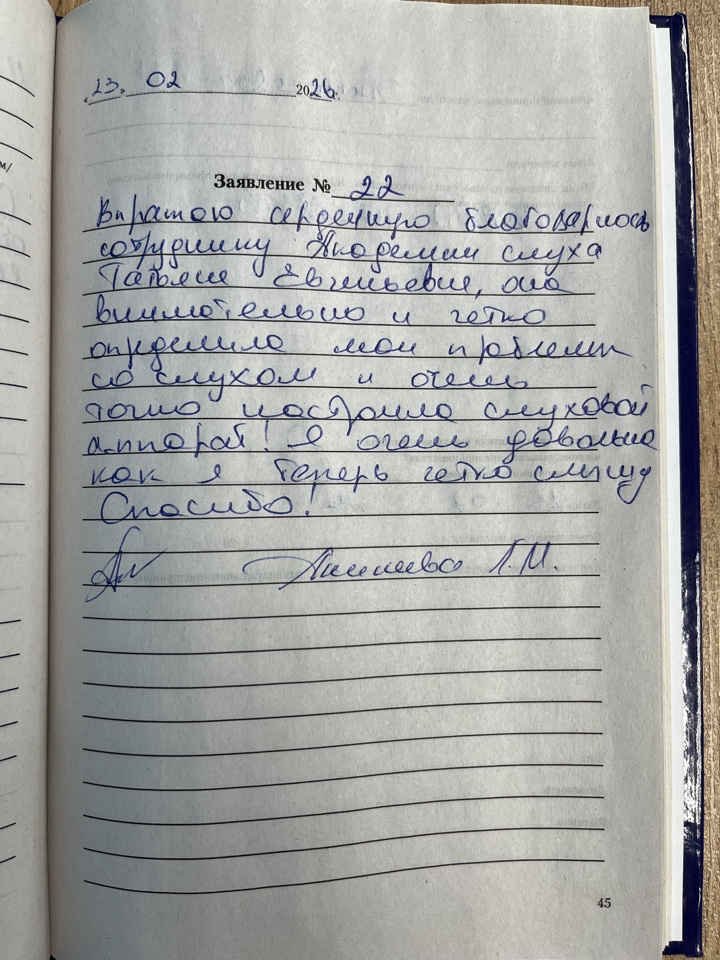 „23" 02 2026г.
Заявление № 22
Выражаю сердечную благодарность
сотруднику Академии слуха
Татьяне Евгеньевне, она
внимательно и четко
определила мои проблемы
со слухом и очень
точно настроила слуховой
аппарат! Я очень довольна
как я теперь четко слышу
Спасибо!
Л.М.
45